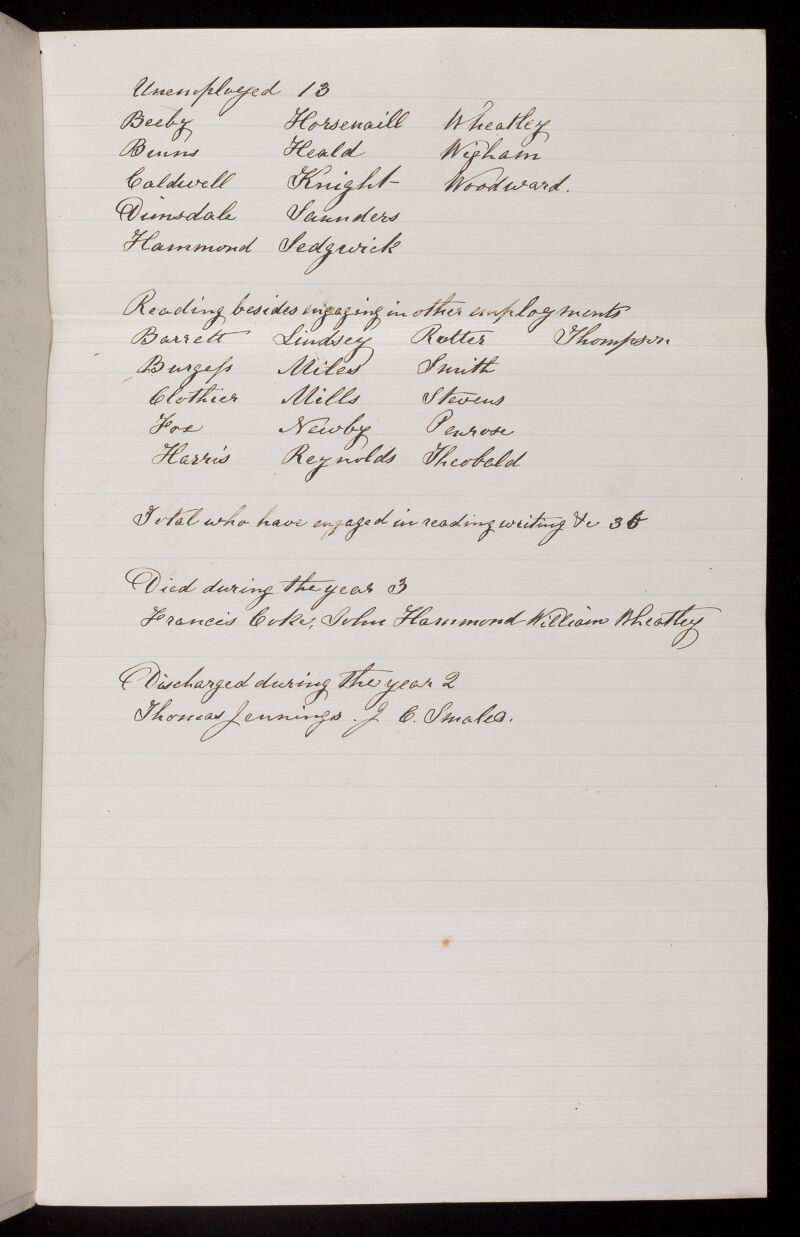 Unemployed 13
Beeby Horsenaill Wheatley
Binns Heald Wigham
Caldwell Knight Woodward.
Dimsdale Saunders
Hammond Sedgwick
Reading besides engaging in other employments
Barrett Lindsey Rutter Thompson
Burgess Miles Smith
Clothier Mills Stevens
Fox Newby Penrose
Harris Reynolds Theobald
Total who have engaged in reading writing &c 36
Died during the year 3
Francis Coke, John Hammond William Wheatley
Discharged during the year 2
Thomas Jennings. J C. Smales.